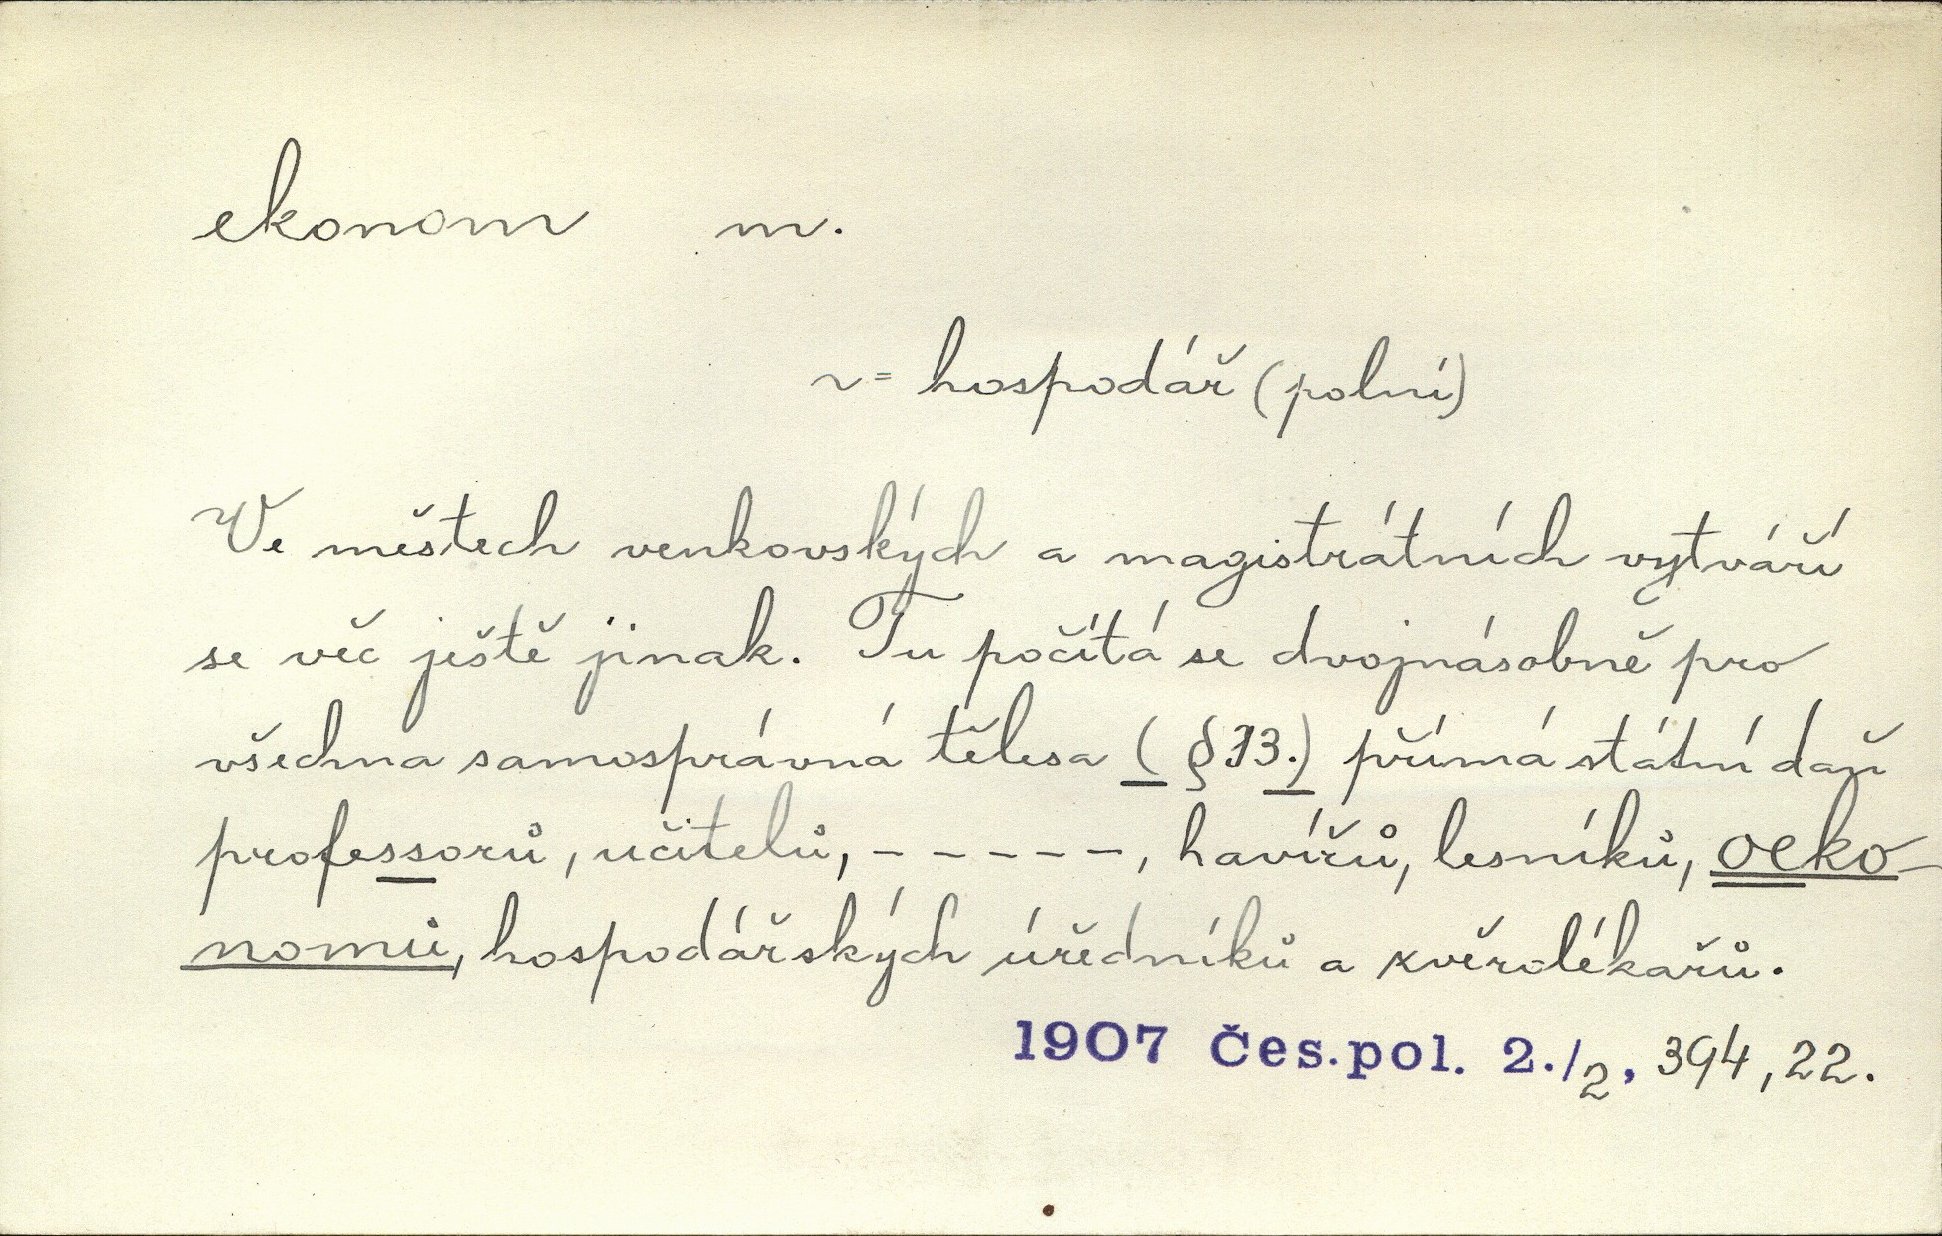 ekonom m.
v= hospodář (polní)
Ve městech venkovských a magistrátních vytváří
se věc ještě jinak. Tu počítá se dvojnásobně pro
všechna samosprávná tělesa (§ 13.) přímá státní daň
professorů, učitelů, – – – – –, havířů, lesníků, oeko-
nomů, hospodářských úředníků a zvěrolékařů.
1907 Čes. pol. 2./2, 394, 22.